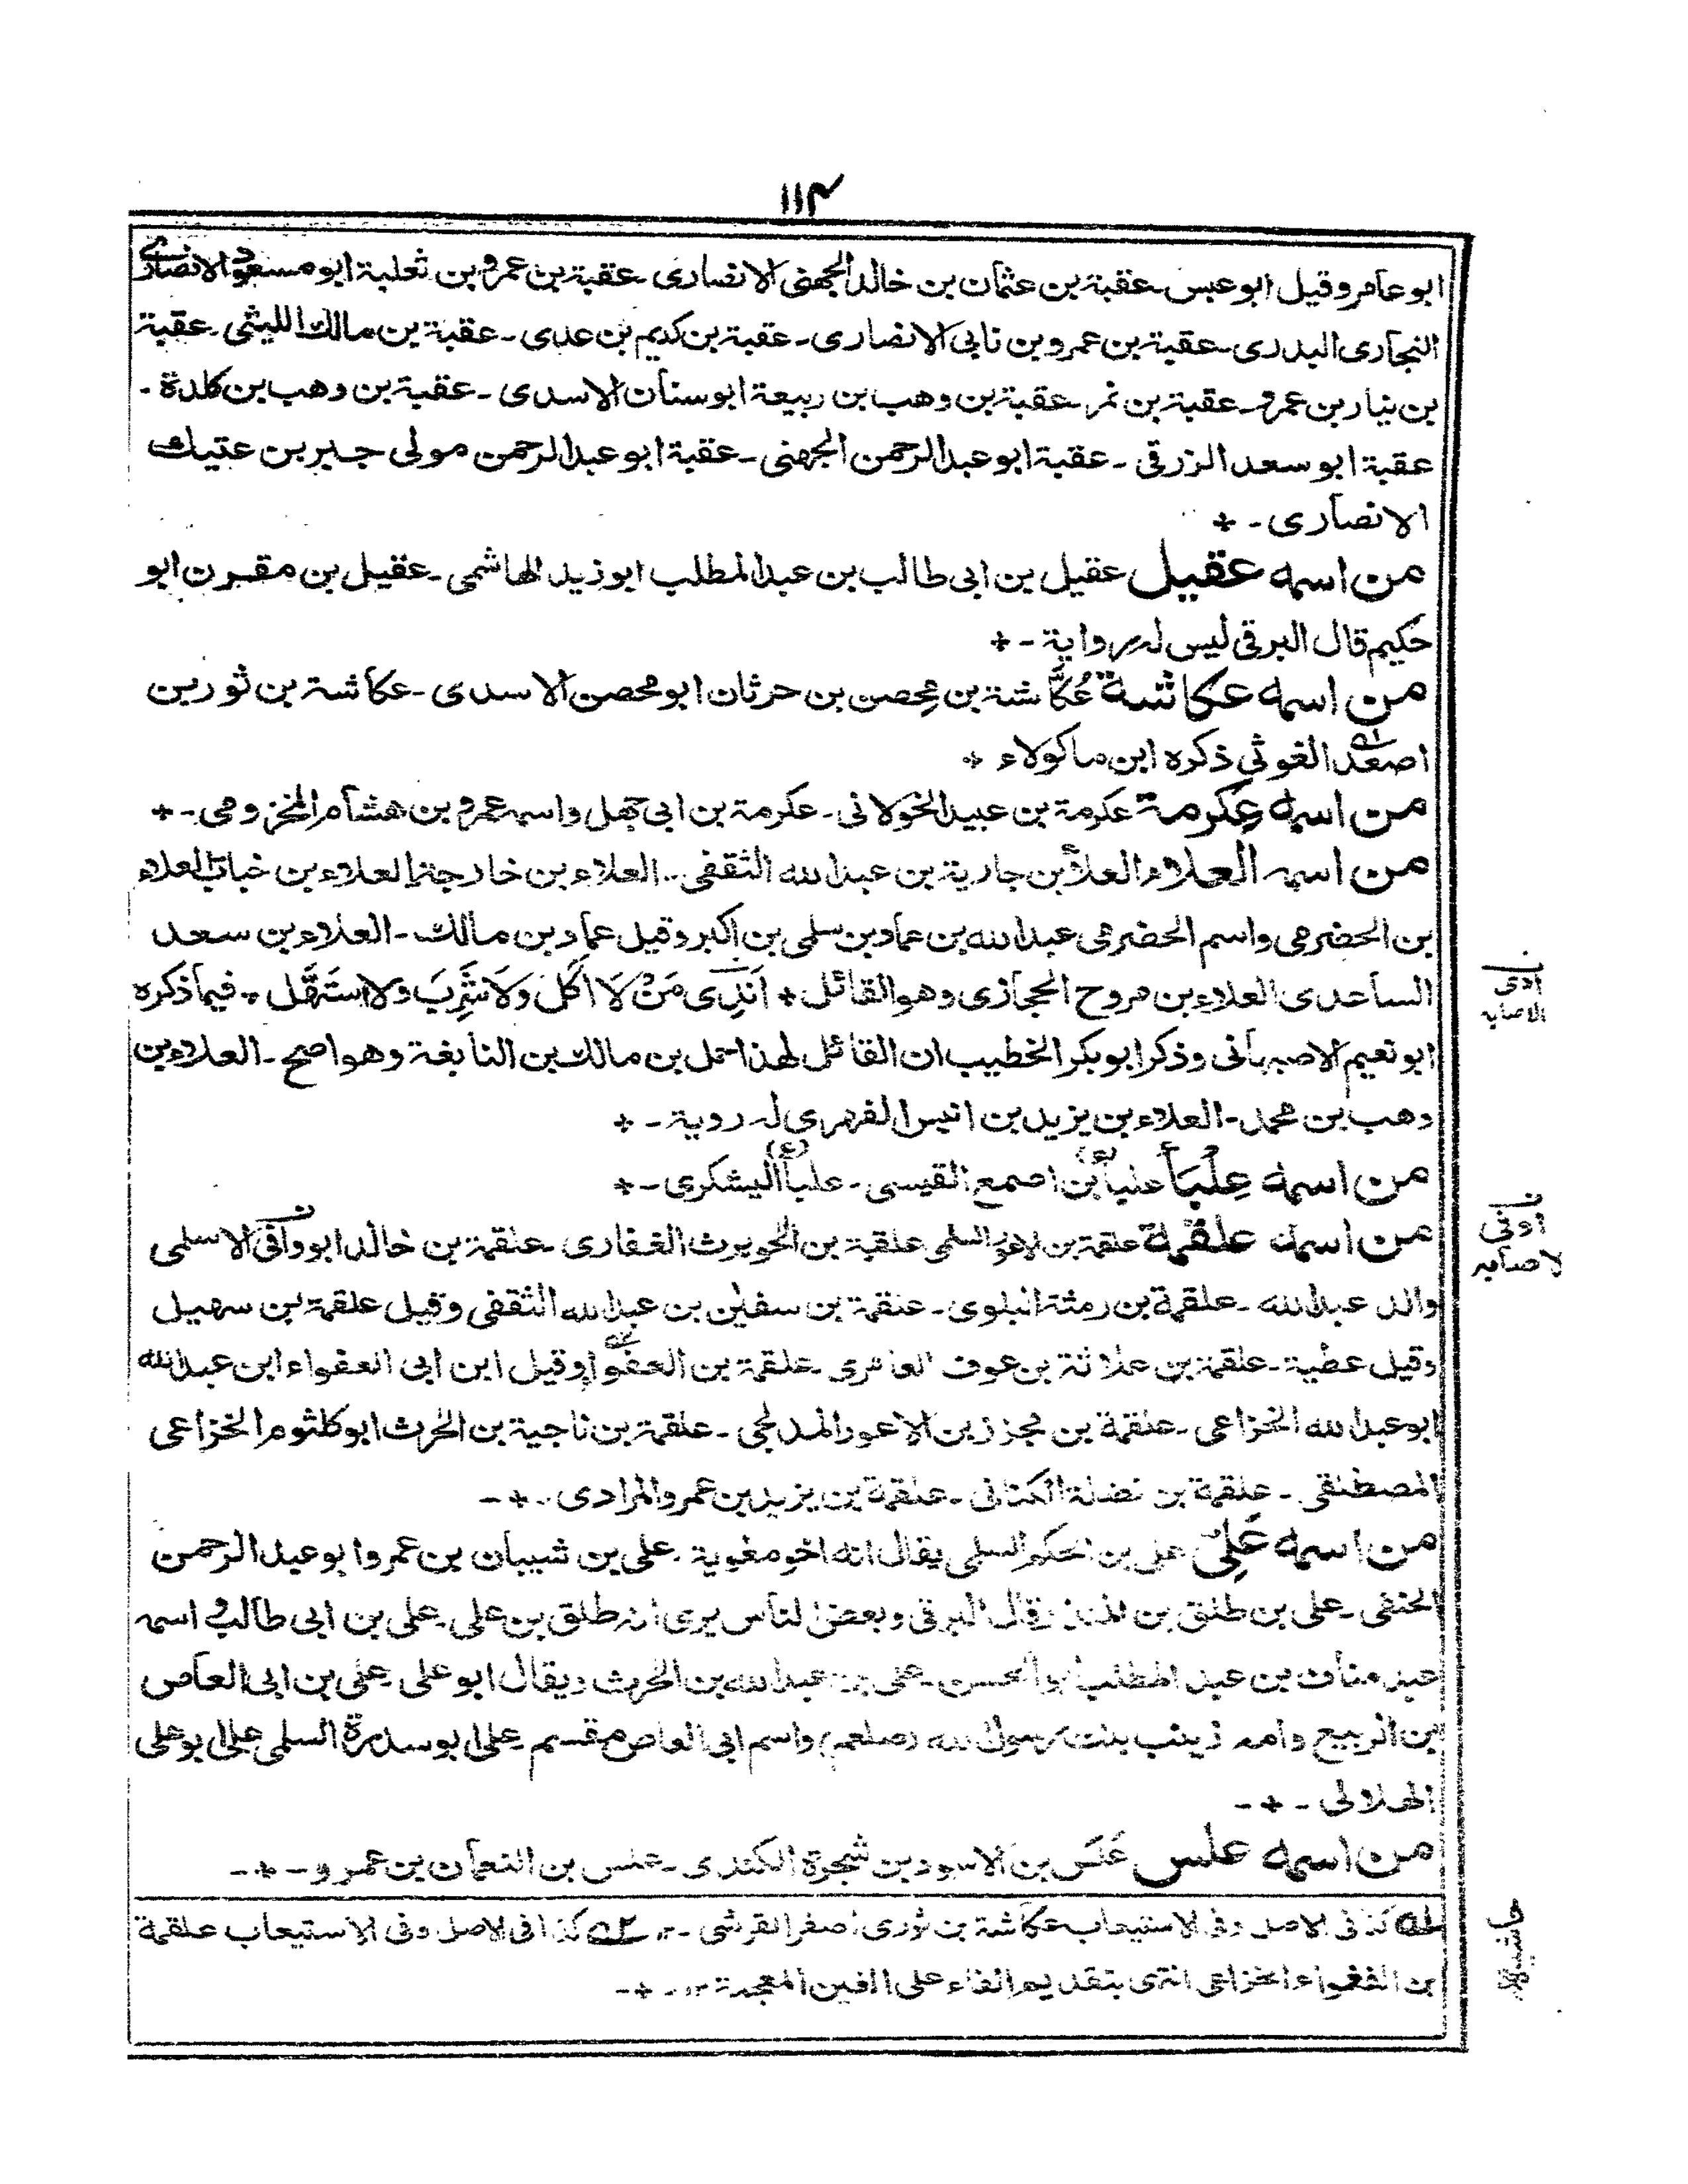 ١١٤
ابو عامر وقيل ابو عبس۔ عقبة بن عثمان بن خالد الجهنى الانصارى۔ عقبة بن عمرو بن ثعلبة ابو مسعود الانصارى
النجارى البدرى۔ عقبة بن عمرو بن نابى الانصارى۔ عقبة بن كديم بن عدى۔ عقبة بن مالك الليثى۔ عقبة
بن نيار بن عمرو۔ عقبة بن نمر۔ عقبة بن وهب بن ربيعة ابو سنان الاسدى۔ عقبة بن وهب بن كلدة۔
عقبة ابو سعد الزرقى۔ عقبة ابو عبد الرحمن الجهنى۔ عقبة ابو عبد الرحمن مولى جبر بن عتيك
الانصارى۔ +
من اسمه عقيل عقيل بن ابى طالب بن عبد المطلب ابو زيد الهاشمى۔ عقيل بن مقرن ابو
حكيم قال البرقى ليس له رواية۔ +
من اسمه عكاشة عُكَّاشة بن مِحصن بن حرثان ابو محصن الاسدى۔ عكاشة بن ثور بن
اصعد الغوثى ذكره ابن ماكولاء +
من اسمه عِكرمة عكرمة بن عبيد الخولانى۔ عكرمة بن ابى جهل واسمه عمرو بن هشام المخزومى۔ +
من اسمه العلاء العلاء بن جارية بن عبد الله الثقفى۔ العلاء بن خارجة العلاء بن خباب العلاء
بن الحضرمى واسم الحضرمى عبد الله بن عماد بن سلمى بن اكبر وقيل عماد بن مالك۔ العلاء بن سعد
الساعدى العلاء بن مروح الحجازى وهو القائل + اَنَدِى مَنْ لَا اَكَلَ وَلَا شَرِبَ ولا استَهَّل + فيما ذكره
ابو نعيم الاصبهانى وذكر ابو بكر الخطيب ان القائل لهذا حمل بن مالك بن النابغة وهو اصح۔ العلاء بن
وهب بن محمد۔ العلاء بن يزيد بن انيس الفهرى له روية۔ +
من اسمه عِلْبَأ علبأ (ء) بن اصمع القيسى۔ علبأ (ء) اليشكرى۔ +
من اسمه علقمة علقمة بن الاعور السلمى علقمة بن الحويرث الغفارى۔ علقمة بن خالد ابو وافى الاسلمى
والد عبد الله۔ علقمة بن رمثة البلوى۔ علقمة بن سفين بن عبد الله الثقفى وقيل علقمة بن سهيل
وقيل عطية۔ علقمة بن علاثة بن عوف العامرى۔ علقمة بن العفوا وقيل ابن ابى العفواء ابن عبد الله
ابو عبد الله الخزاعى۔ علقمة بن مجزز بن الاعور المدلجى۔ علقمة بن ناجية بن الحرث ابو كلثوم الخزاعى
المصطلقى۔ علقمة بن نضلة الكنانى۔ علقمة بن يزيد بن عمرو المرادى۔ + ۔
من اسمه عَلِىّ على بن الحكم السلمى يقال انه اخو معوية۔ على بن شيبان بن عمرو ابو عبد الرحمن
الحنفى۔ على بن طلق بن المنذر قال البرقى وبعض الناس يرى انه طلق بن على۔ على بن ابى طالب اسمه
عبد مناف بن عبد المطلب ابو الحسن۔ على بن عبد الله بن الحرث ويقال ابو على۔ على بن ابى العاص
بن الربيع وامه زينب بنت رسول الله (صلعم) واسم ابى العاص مقسم۔ على ابو سدرة السلمى على ابو على
الهلالى۔ + ۔
من اسمه علس عَلَس بن الاسود بن شجرة الكندى۔ علس بن النعمان بن عمرو۔ + ۔
له كذا فى الاصل وفى الاستيعاب عكاشة بن ثورى اصغر القرشى۔ ١٢ ۵۲ كذا فى الاصل وفى الاستيعاب علقمة
بن الفغواء الخزاعى انتهى بتقديم الفاء على الغين المعجمة ١٢۔ + ۔
ن
أدى
الاصابه
ن
اوفى
لا صابه